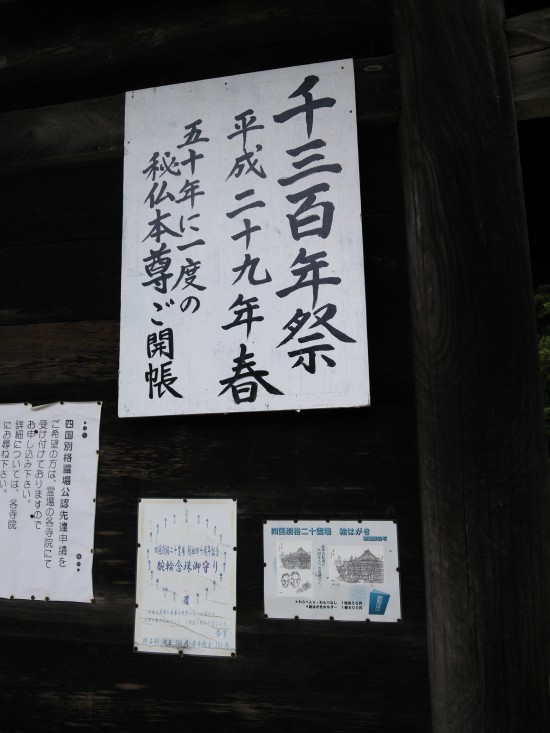 千三百年祭
平成二十九年春
五十年に一度の
秘仏本尊ご開帳
四国別格霊場公認先達申請を
ご希望の方は、霊場の各寺院にて
受け付けておりますので
お申し込み下さい。
詳細については、各寺院
にお尋ね下さい。
腕輪念珠御守り
四国別格二十霊場 絵はがき